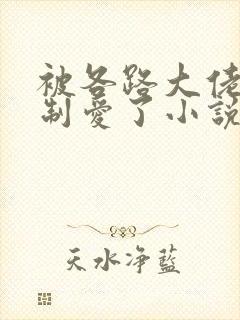 被各路大佬
制爱了小說
天水净藍